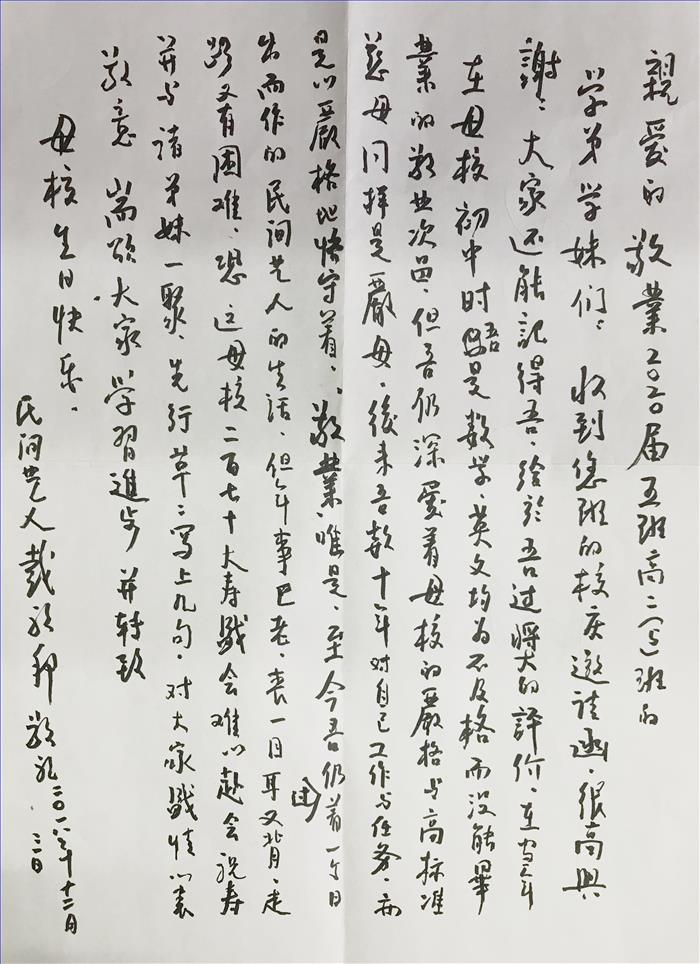 親爱的敬業二〇二〇届五班高二(5)班的
学弟学妹们：收到您班的校庆邀请函，很高興
謝谢大家还能記得吾，给於吾过将大的評价，在当年
在母校初中时吾是数学、英文均为不及格而没能畢
業的敬业次品，但吾仍深愛着母校的嚴格与高标准
慈母同样是嚴母，後来吾数十年对自己工作与任务，亦
是以嚴格地恪守着，敬業唯是，至今吾仍着一个日
出而作的民间艺人的生活，但年事已老，丧一目耳又背，走
路又有困难，恐这母校二百七十大寿戬会难以赴会祝寿
并与诸弟妹一聚，先行草草写上几句，对大家戬情以表
敬意 耑颂大家学習進步 并转致
母校生日快乐。
民间艺人戴敬礼 二〇一八年十二月
三日